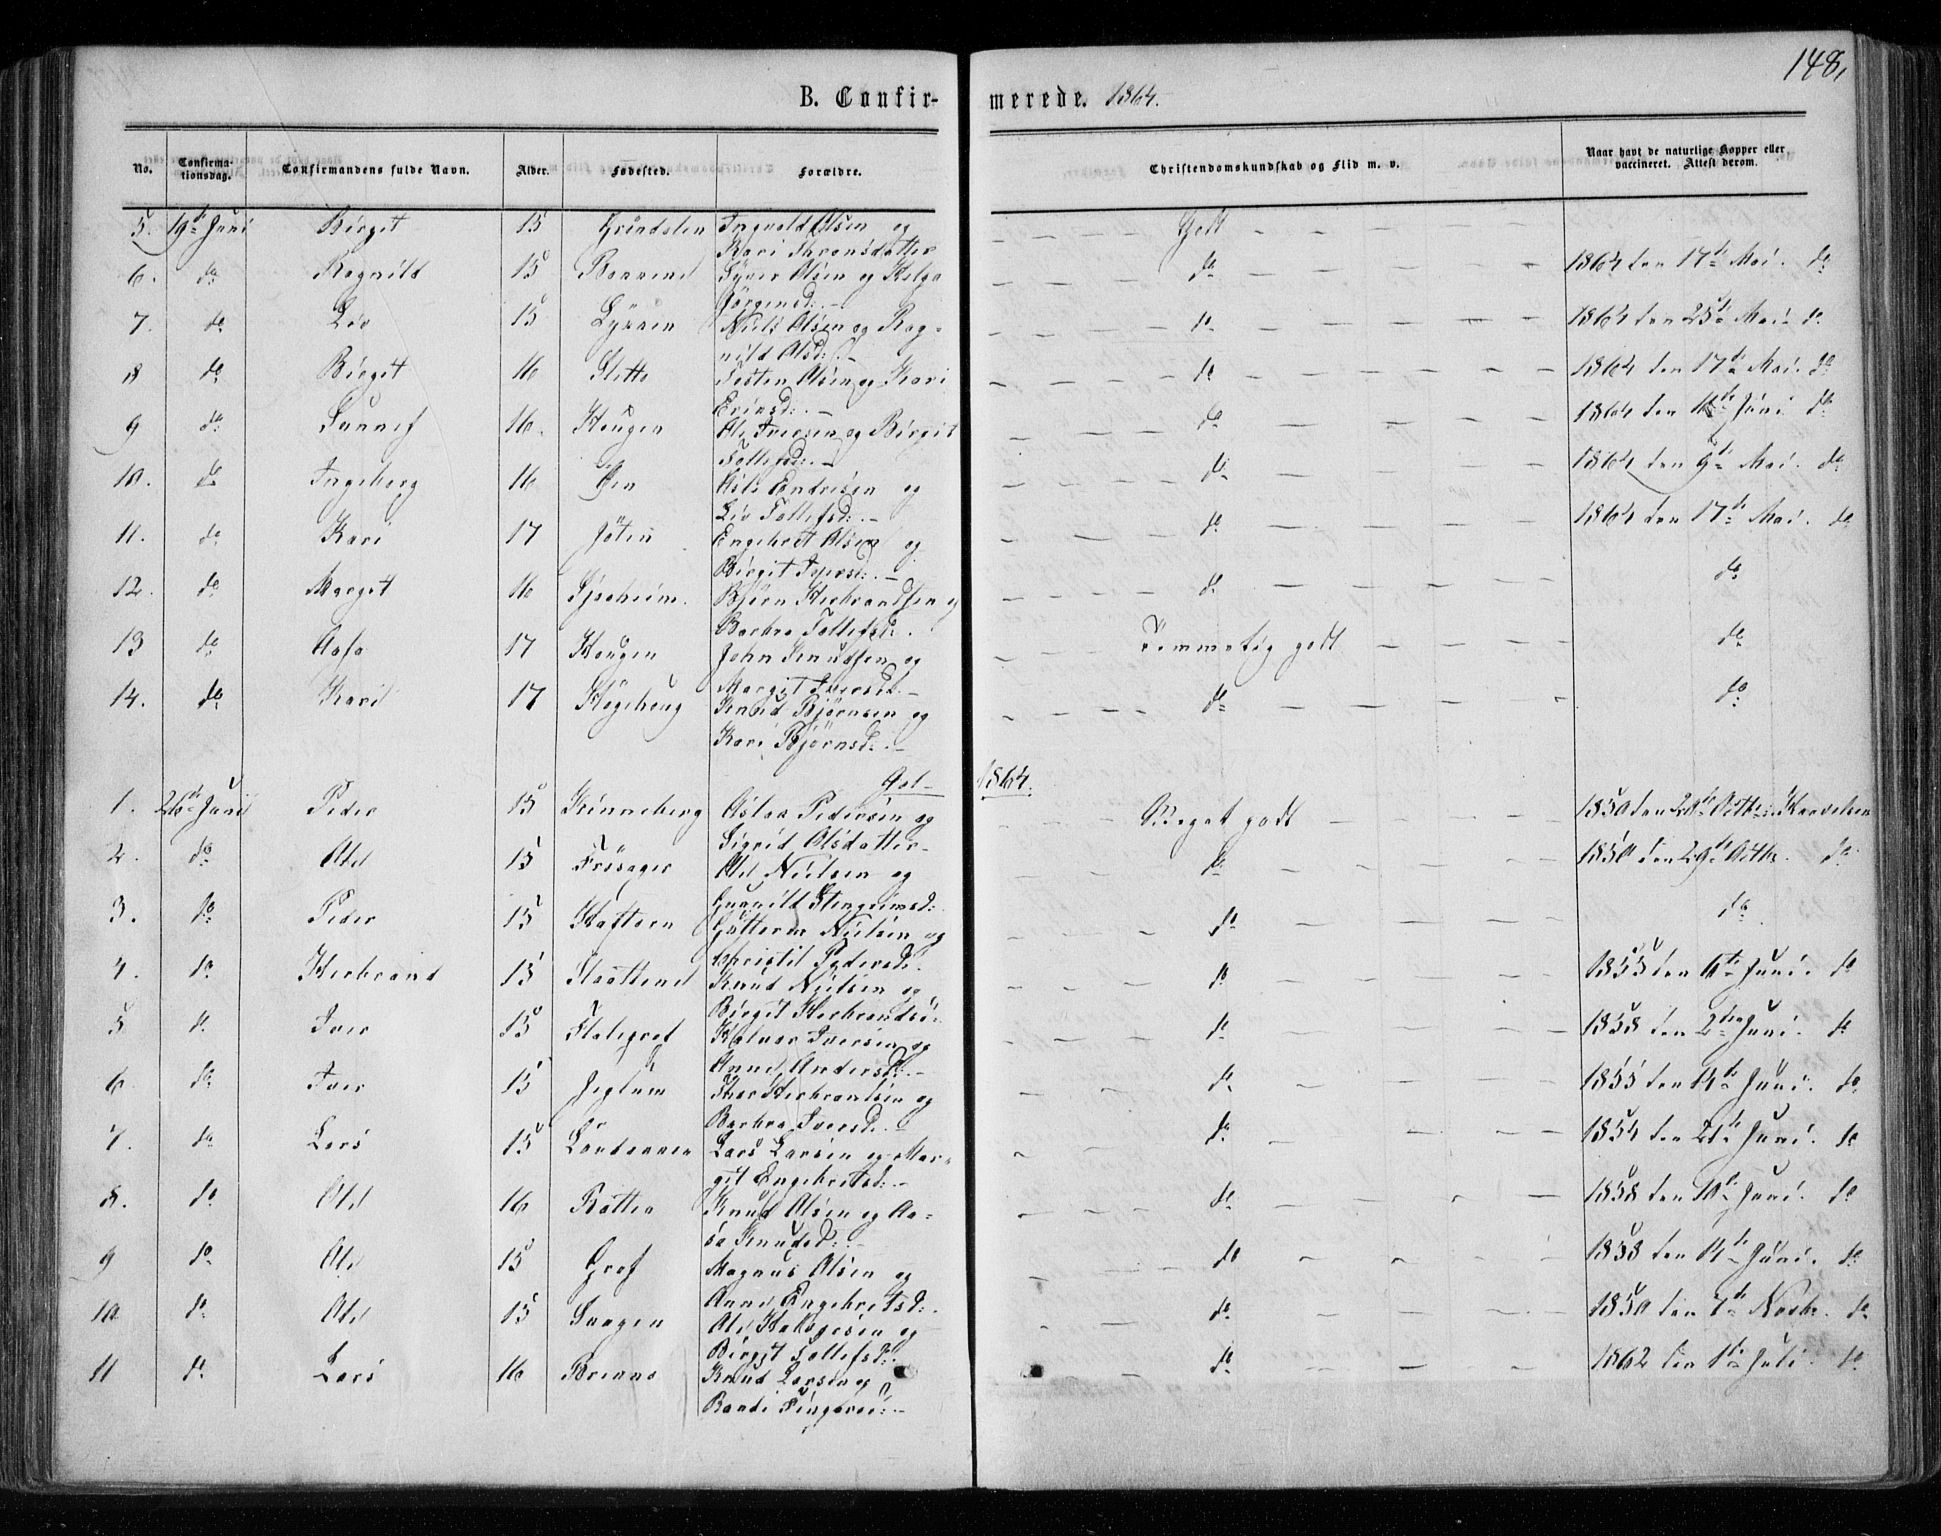 148,
B. Confirmerede. 1864.
No. Confirmationsdag. Confirmandens fulde Navn. Alder. Fødested. Forældre. Christendomskundskab og Flid m. v. Naar havt de naturlige Kopper eller vaccineret. Attest derom.
5. 19de Juni Birgit 15 Grøndalen Ingvald Olsen og Godt
Kari Thronsdatter
6. do Ragnild 15 Syver Olsen og Helga do 1864 den 17de Mai. do
Jørgensd: –
7. do Liv 15 Niels Olsen og Rag- do 1864 den 25de Mai do
nild Olsd: –
8 do Birgit 16 Slette Tosten Olsen og Kari do 1864 den 17de Mai. do
9 do Sunnef 16. Haugen Ole Iversen og Birgit do 1864 den Juni do
Tollefsd: –
10. do Ingeborg 16 Øen Endresen og do 1864 den 9de Mai. do
Liv Tollefsd: –
11. do Kari 17 Engebret Olsen og do 1864 den 17de Mai. do
Birgit Iversd: –
12. do Margit 16 Bjørn Herbrandsen og do do
Barbro Tollefsd: .
13 do Aasa 17 Haugen John Knudsen og Temmelig godt do
Margit Iversd. –
14. do Kari 17 Høgehaug Knud Bjørnsen og do do
Kari Bjørnsd: –
Gol – 1864.
1. 26de Juni Peder 15 Kinneberg Aslac Pedersen og Meget godt 1850 den Octbr
Sigrid Olsdatter –
2. do Ole 15 Frøsager Ole Nielsen og do 1850 den 29de Octbr. do
Gunnild Stengrimsd:
3. do Peder 15 Haftorn Guttorm Nielsen og do do
Christie Pedersd:
4. do Herbrand 15 Slaatten Knud Nielsen og do 1855 den Juni. do
Birgit Herbrandsd:
5 do Iver 15 Halvor Iversen og do 1858 den 2den Juni. do
Anne Andersd: –
6 do Iver 15 Jeglum Thor Herbrandsen og do 1855 den 14de Juni. do
Barbro Iversd: –
7. do Lars 15 Lars Larsen og Mar- do 1854 den 21de Juni. do
git Engebretsd: –
8. do Ole 16 Knud Olsen og Aa- do 1858 den 10de Juni. do
sa Knudsd: –
9 do Ole 15 Grøf Magnus Olsen og do 1858 den 14de Juni. do
Anne Engebretsd:
10 do Ole 15 Ole og do 1850 den 7de Novbr. do
Birgit Tollefsd:
11 do Lars 16 Brenno Knud Larsen og do 1862 den 1de Juli. do
Randi